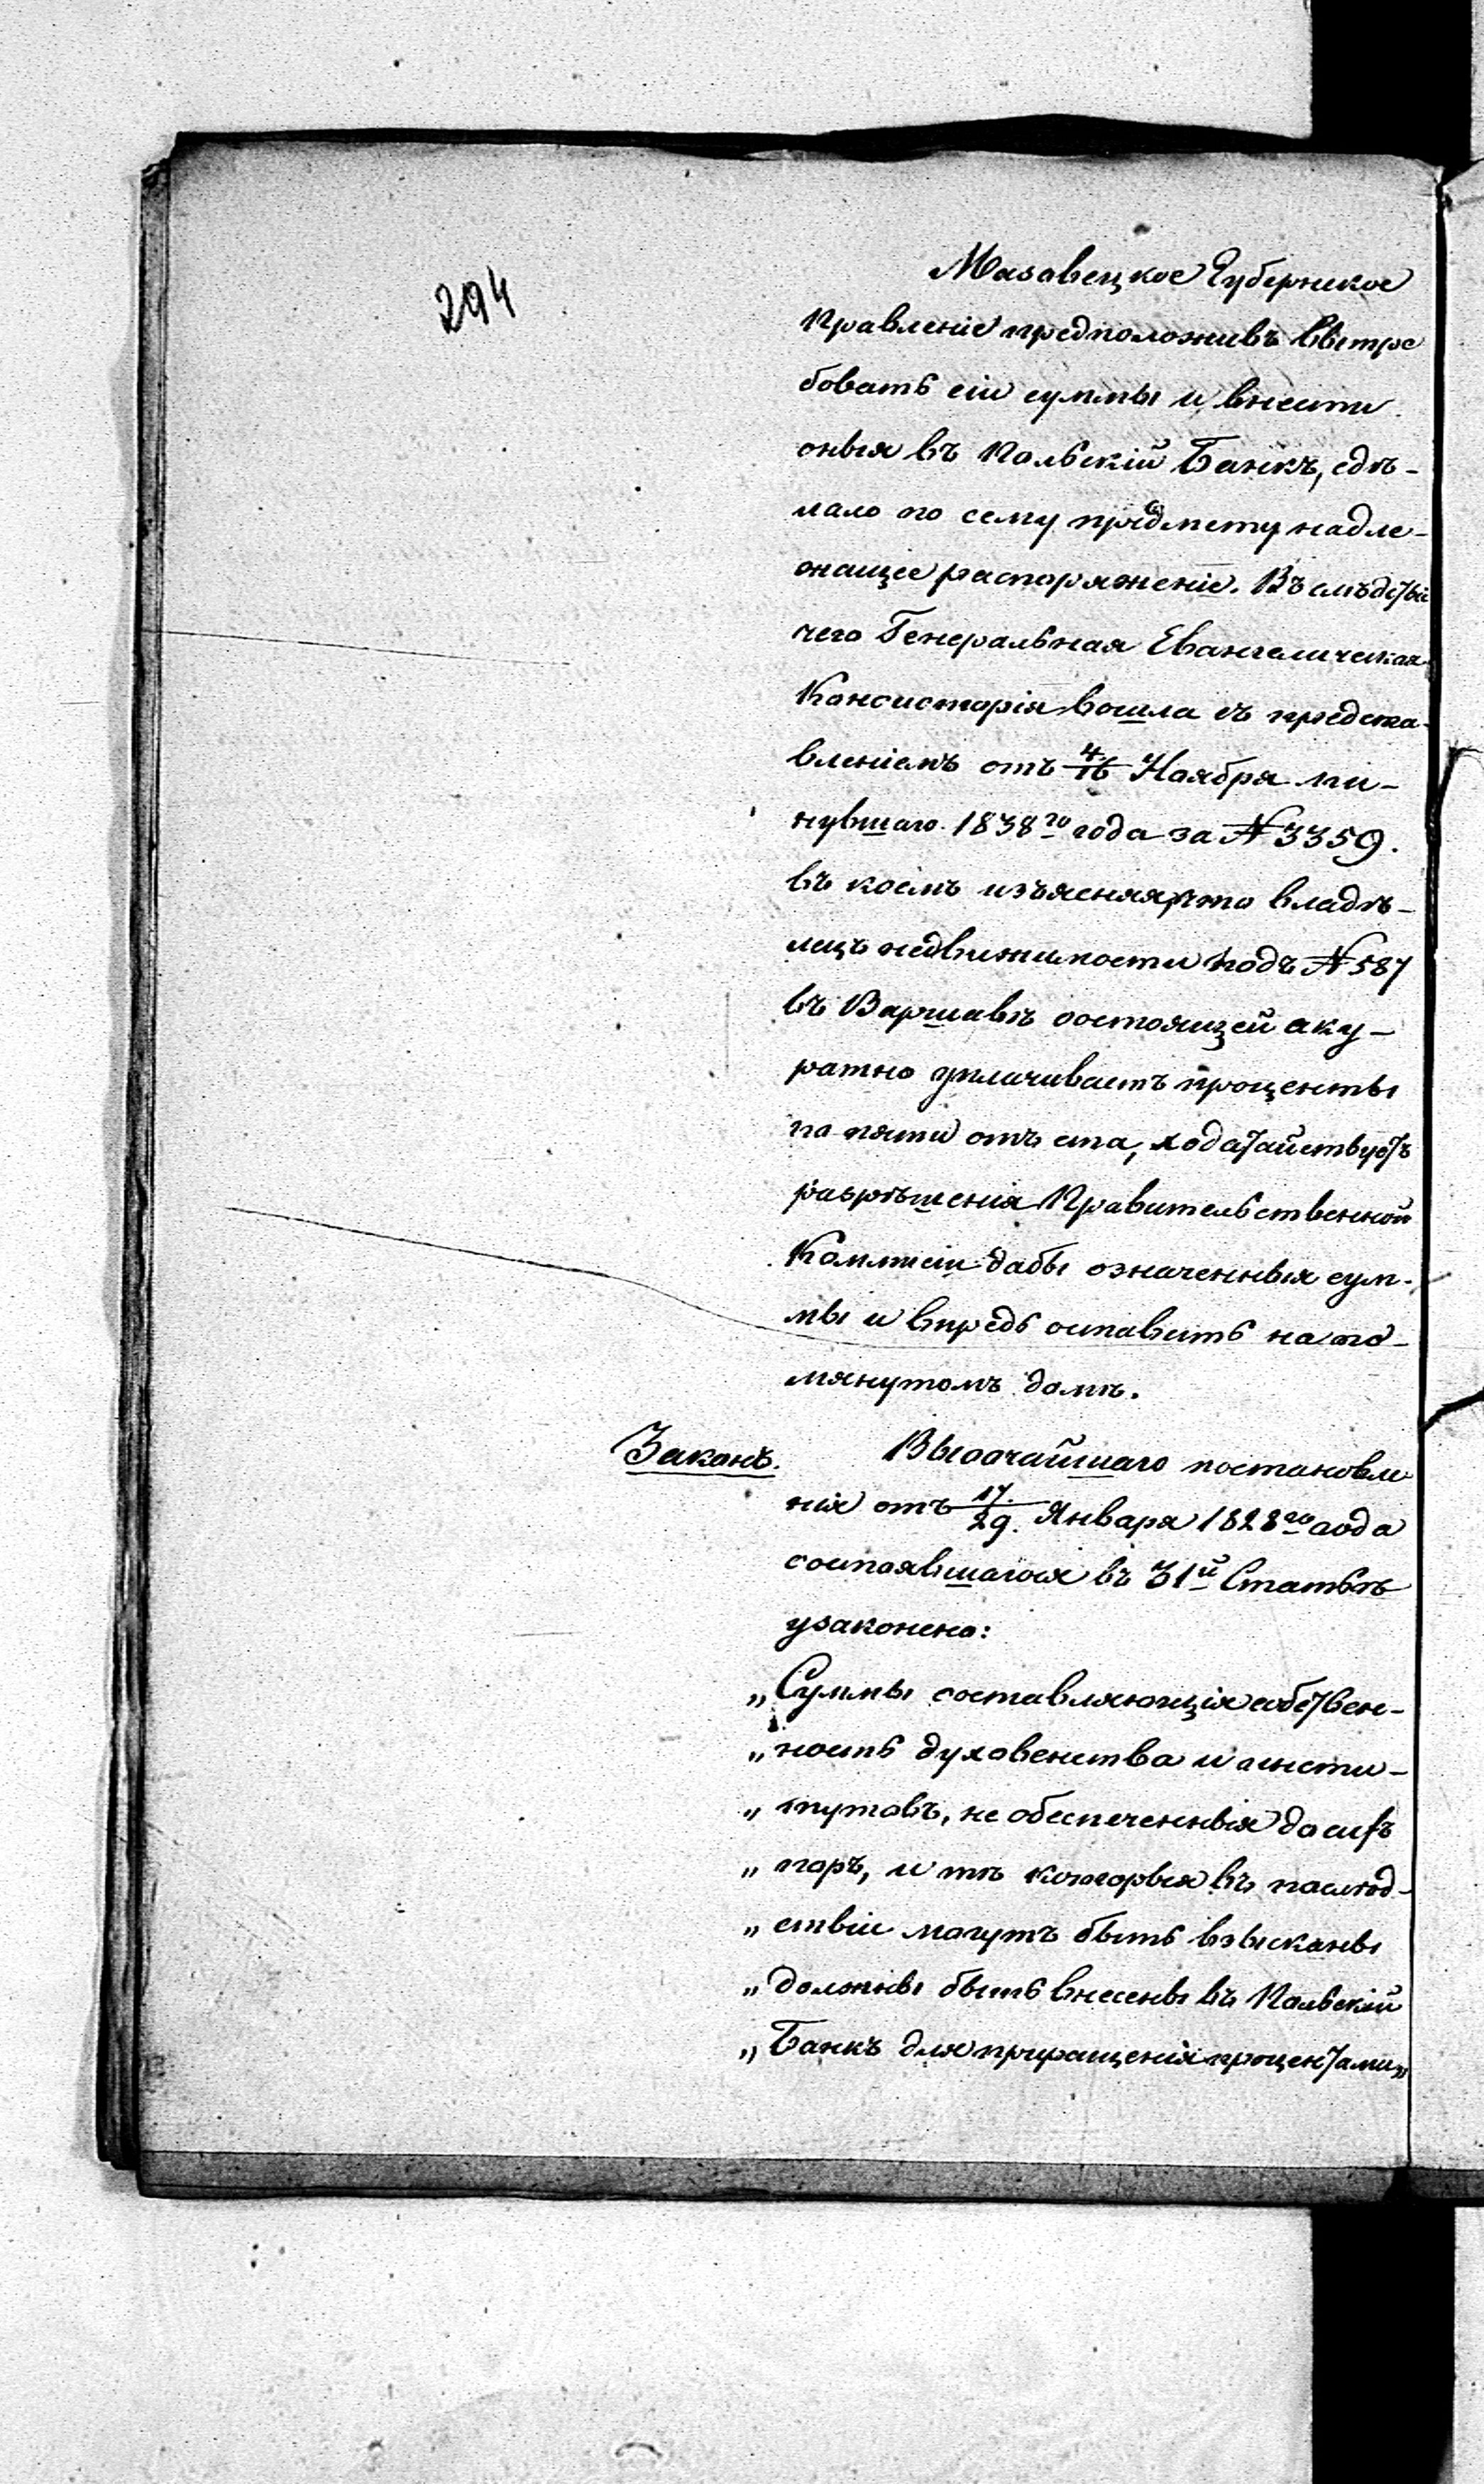 294
Мазовецкое Губернское
Правленіе предположивъ вытре
бовать сіи суммы и внести
оныя въ Польскій Банкъ, сдѣ-
лало по сему предмету надле-
жащее распоряженіе. Въ слѣдствіе
чего Генеральная Евангелическая
Консисторія вошла съ предста-
вленіемъ отъ 4/16 Ноября ми-
нувшаго 1838го года за № 3359.
въ коемъ изъясняя, что владѣ-
лецъ недвижимости подъ № 587
въ Варшавѣ состоящей аку-
ратно уплачиваетъ проценты
по пяти отъ ста, ходатайствуетъ
разрѣшенія Правительственной
Коммисіи дабы означенныя сум-
мы и впредь оставить на по-
мянутомъ домѣ.
Законъ.
Высочайшаго постановле
нія отъ 17./29. Января 1828го года
состоявшагося въ 31й Статьѣ
узаконено:
„Суммы составляющія собствен-
„ность духовенства и инсти-
„тутовъ, не обеспеченныя до сихъ
„поръ, и тѣ которыя въ послѣд-
„ствіи могутъ быть взысканы
„должны быть внесены въ Польскій
„Банкъ для приращенія процентами„